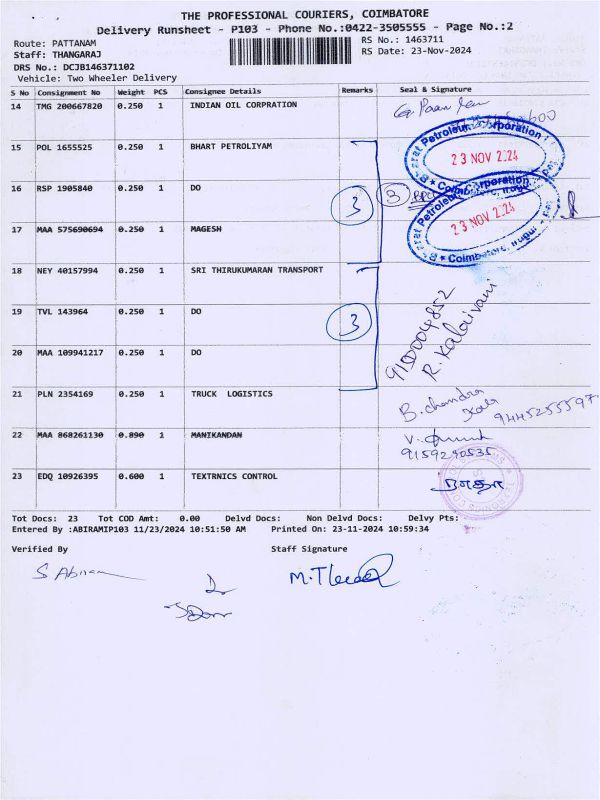 THE PROFESSIONAL COURIERS, COIMBATORE
Delivery Runsheet - P103 - Phone No.:0422-3505555 - Page No.:2
Route: PATTANAM RS No.: 1463711
Staff: THANGARAJ RS Date: 23-Nov-2024
DRS No.: DCJB146371102
Vehicle: Two Wheeler Delivery
S No Consignment No Weight PCS Consignee Details Remarks Seal & Signature
14 TMG 200667820 0.250 1 INDIAN OIL CORPRATION
15 POL 1655525 0.250 1 BHART PETROLIYAM
Petroleum Corporation
23 NOV 2024
16 RSP 1905840 0.250 1 DO 3 3
Petroleum Corporation
23 NOV 2024
Coimbatore, Irugur
17 MAA 575690694 0.250 1 MAGESH
18 NEY 40157994 0.250 1 SRI THIRUKUMARAN TRANSPORT
19 TVL 143964 0.250 1 DO 3
R. Kalaivani
20 MAA 109941217 0.250 1 DO
21 PLN 2354169 0.250 1 TRUCK LOGISTICS B. chandra
9445255597
22 MAA 868261130 0.890 1 MANIKANDAN
9159290535
23 EDQ 10926395 0.600 1 TEXTRNICS CONTROL
Tot Docs: 23 Tot COD Amt: 0.00 Delvd Docs: Non Delvd Docs: Delvy Pts:
Entered By :ABIRAMIP103 11/23/2024 10:51:50 AM Printed On: 23-11-2024 10:59:34
Verified By Staff Signature